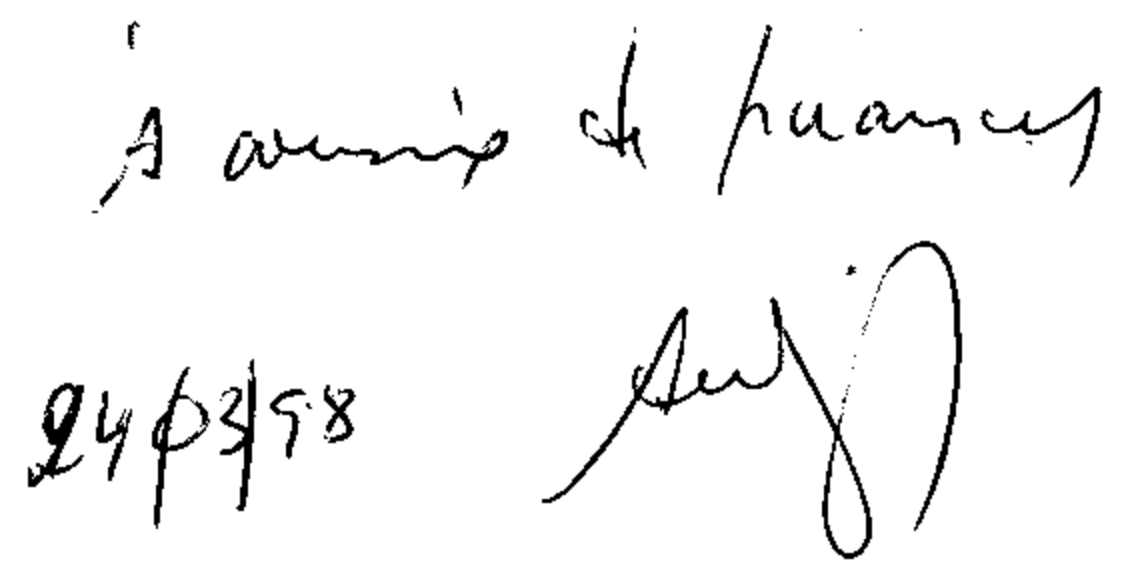 À comissão de finanças
24/03/98